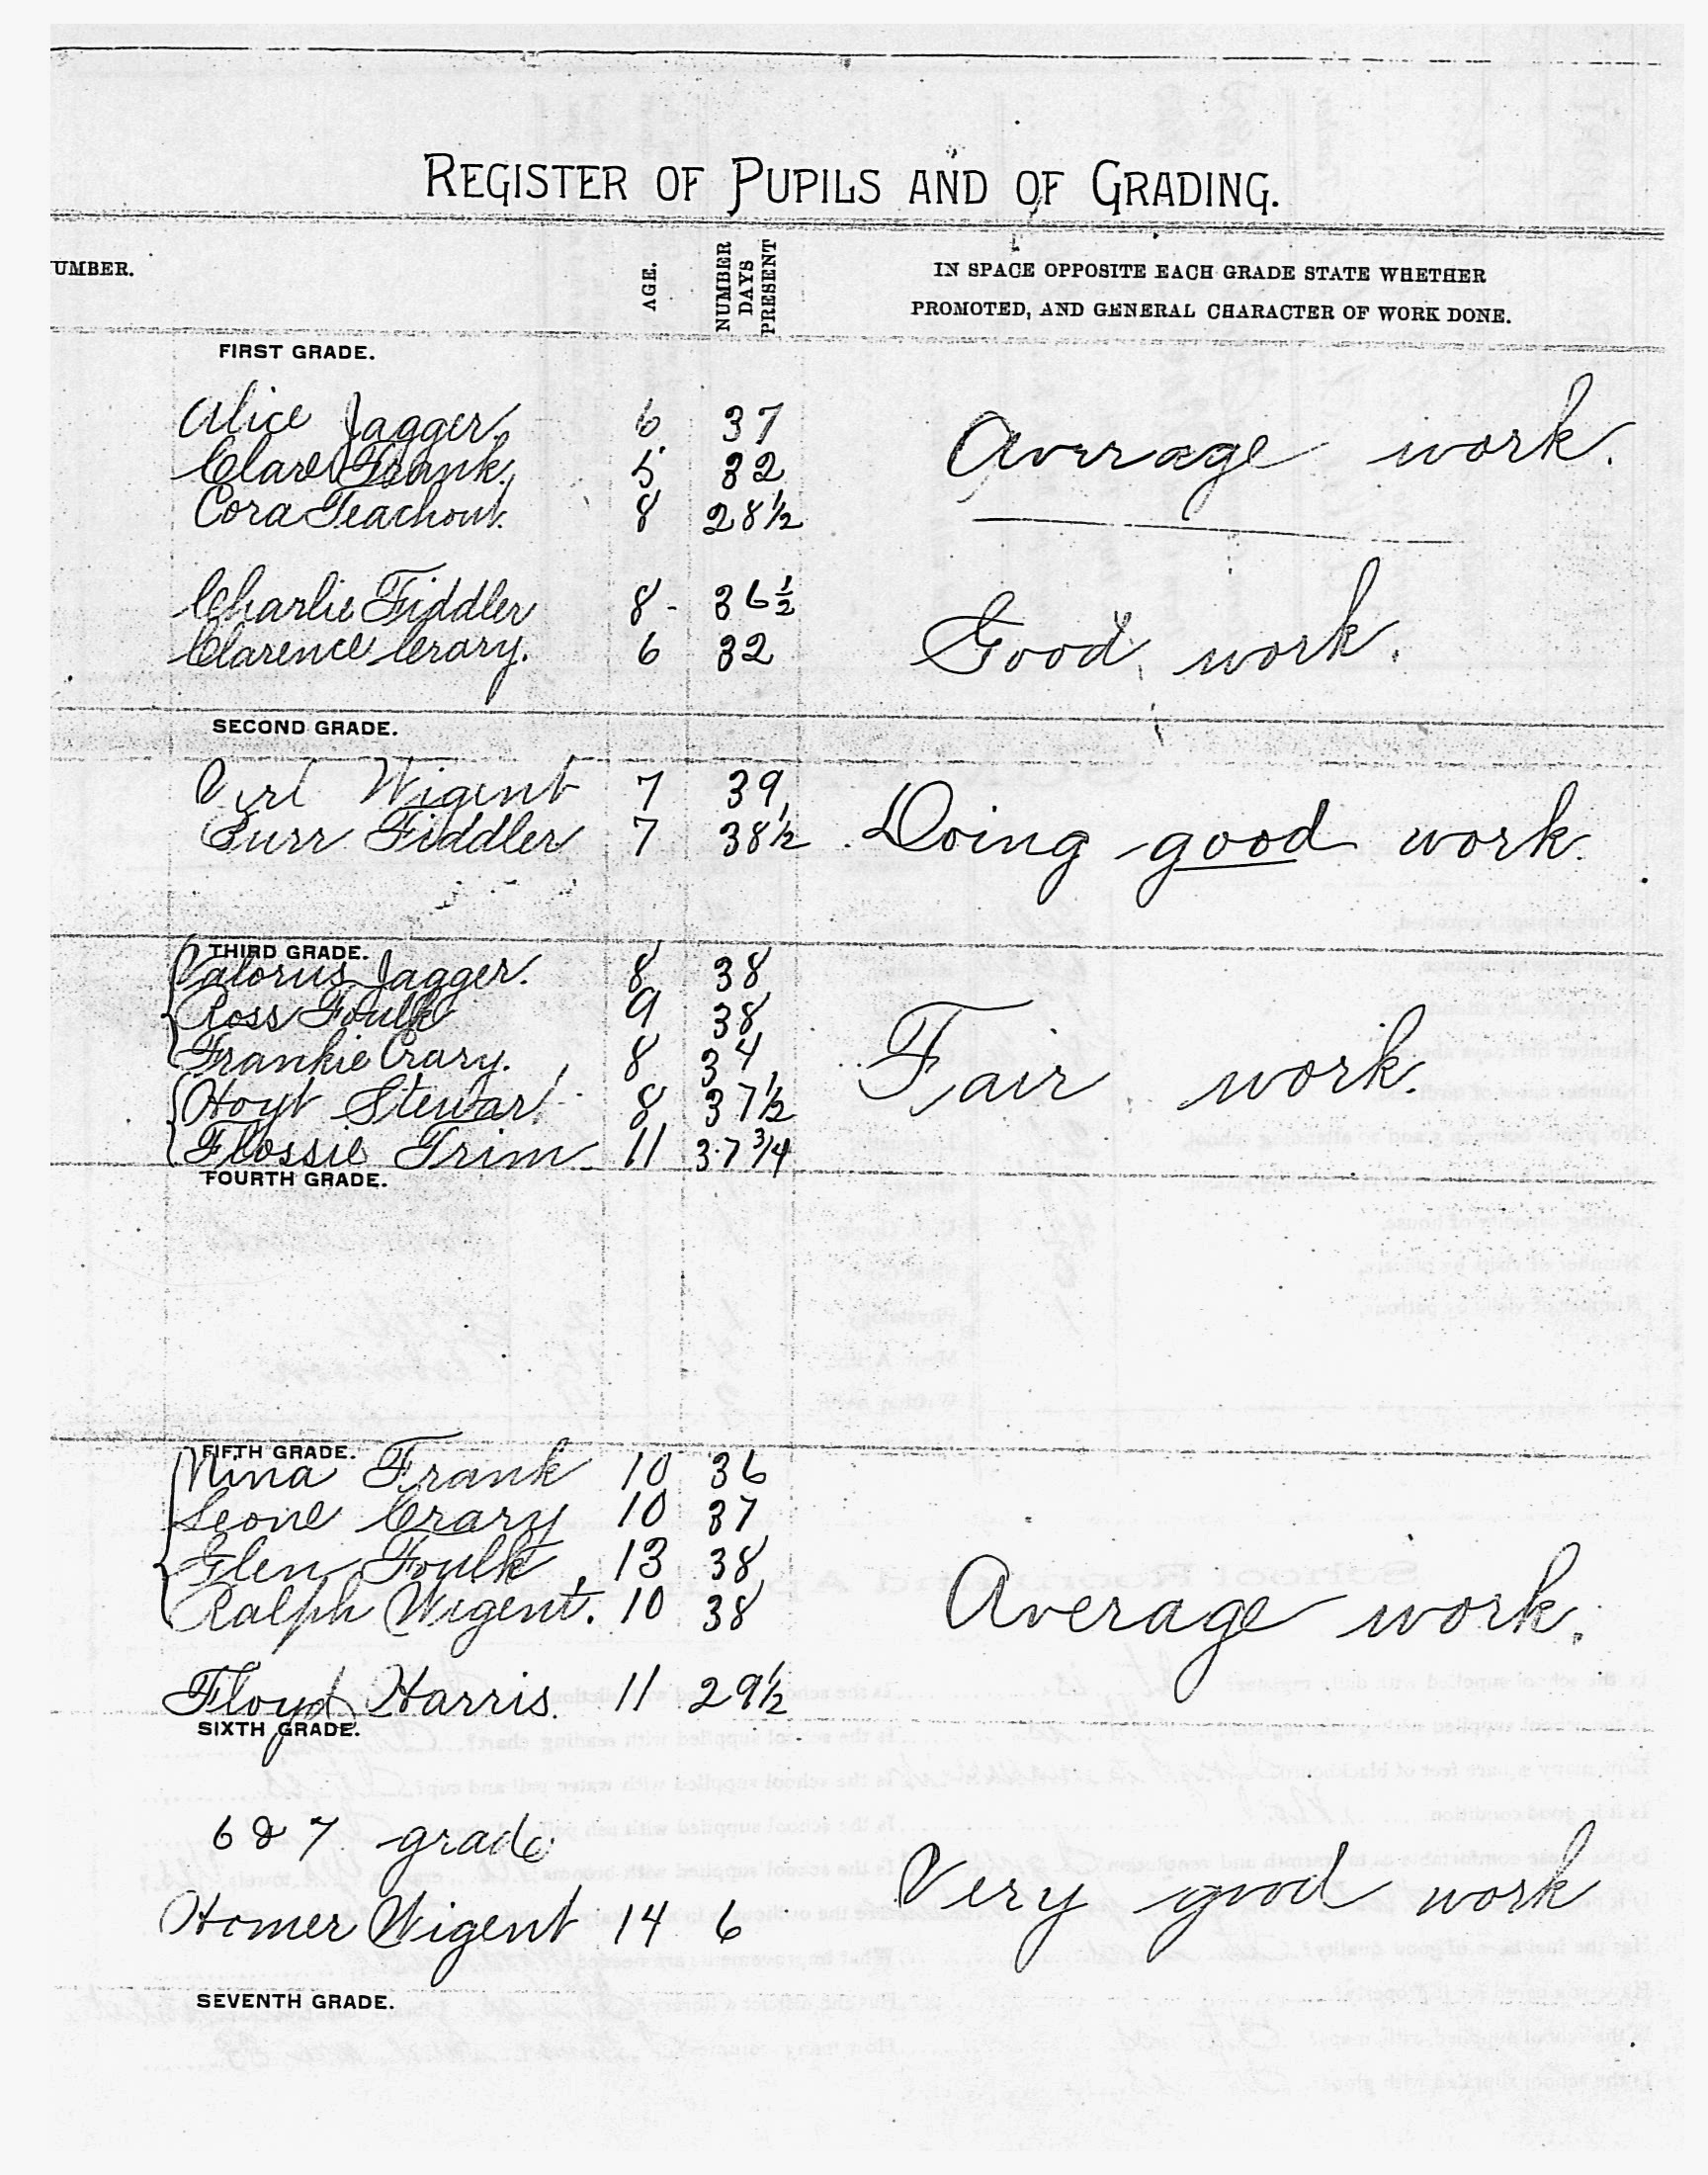 REGISTER OF PUPILS AND OF GRADING.
UMBER.
AGE.
NUMBER DAYS PRESENT
IN SPACE OPPOSITE EACH GRADE STATE WHETHER
PROMOTED, AND GENERAL CHARACTER OF WORK DONE.
FIRST GRADE.
Alice Jagger. 6 37
Clare Frank. 5 32 Average work.
Cora Teachout. 8 28 1/2
Charlie Fiddler 8 - 36 1/2
Clarence Crary. 6 32 Good work.
SECOND GRADE.
Verl Wigent 7 39
Burr Fiddler 7 38 1/2 Doing good work.
THIRD GRADE.
Valorus Jagger. 8 38
Ross Foulk 9 38
Frankie Crary. 8 34 Fair work.
Hoyt Stewart 8 37 1/2
Flossie Trim 11 37 3/4
FOURTH GRADE.
FIFTH GRADE.
Nina Frank 10 36
Leone Crary 10 37
Glen Foulk 13 38
Ralph Wigent. 10 38 Average work.
Floyd Harris. 11 29 1/2
SIXTH GRADE.
6 & 7 grade
Homer Wigent 14 6 Very good work
SEVENTH GRADE.